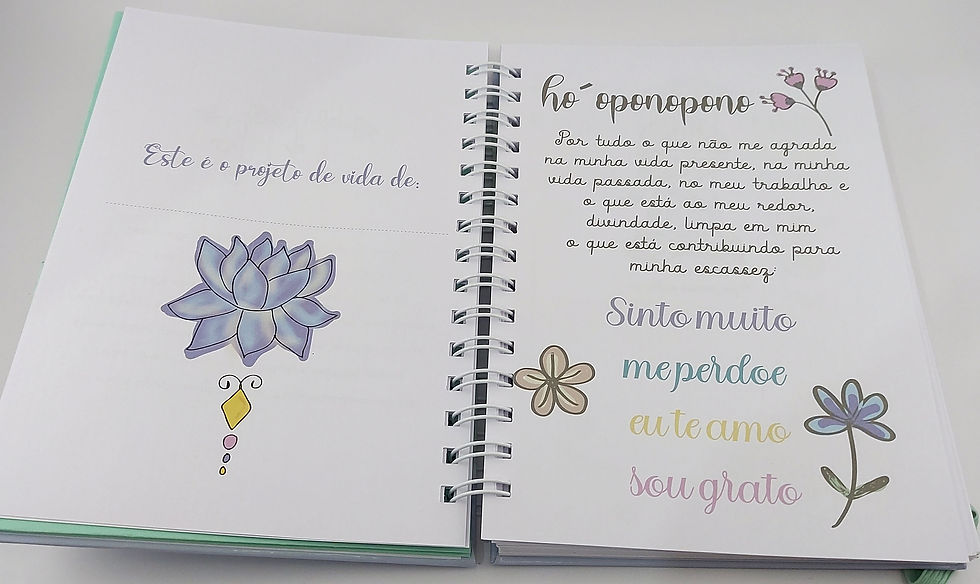 Este é o projeto de vida de:
ho´oponopono
Por tudo o que não me agrada
na minha vida presente, na minha
vida passada, no meu trabalho e
o que está ao meu redor,
divindade, limpa em mim
o que está contribuindo para
minha escassez:
Sinto muito
me perdoe
eu te amo
sou grato